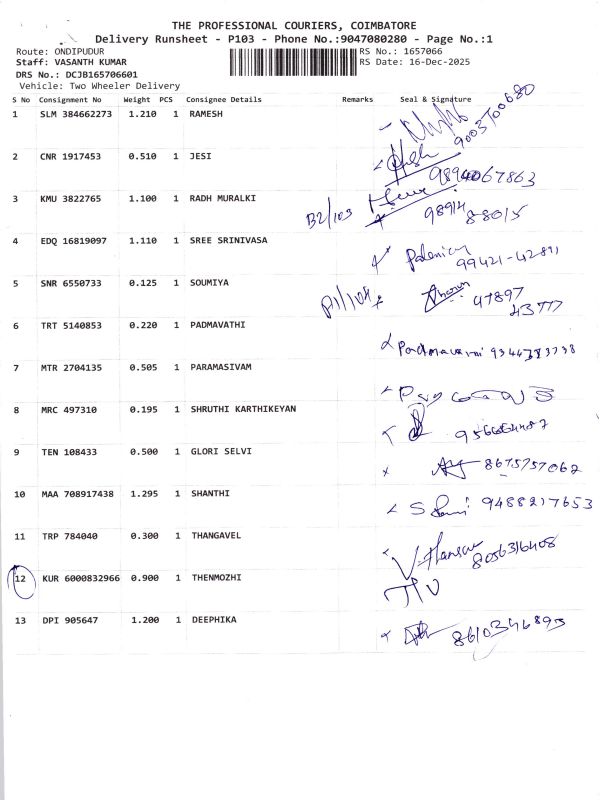 THE PROFESSIONAL COURIERS, COIMBATORE
Delivery Runsheet - P103 - Phone No.:9047080280 - Page No.:1
Route: ONDIPUDUR RS No.: 1657066
Staff: VASANTH KUMAR RS Date: 16-Dec-2025
DRS No.: DCJB165706601
Vehicle: Two Wheeler Delivery
S No Consignment No Weight PCS Consignee Details Remarks Seal & Signature
1 SLM 384662273 1.210 1 RAMESH 9003700680
2 CNR 1917453 0.510 1 JESI 9894067863
3 KMU 3822765 1.100 1 RADH MURALKI B2/103 98914
88015
4 EDQ 16819097 1.110 1 SREE SRINIVASA
99421-42891
5 SNR 6550733 0.125 1 SOUMIYA 47897
43777
6 TRT 5140853 0.220 1 PADMAVATHI
7 MTR 2704135 0.505 1 PARAMASIVAM
8 MRC 497310 0.195 1 SHRUTHI KARTHIKEYAN
9 TEN 108433 0.500 1 GLORI SELVI 8675757062
10 MAA 708917438 1.295 1 SHANTHI 9488217653
11 TRP 784040 0.300 1 THANGAVEL 8056316408
12 KUR 6000832966 0.900 1 THENMOZHI
13 DPI 905647 1.200 1 DEEPHIKA 8610346895